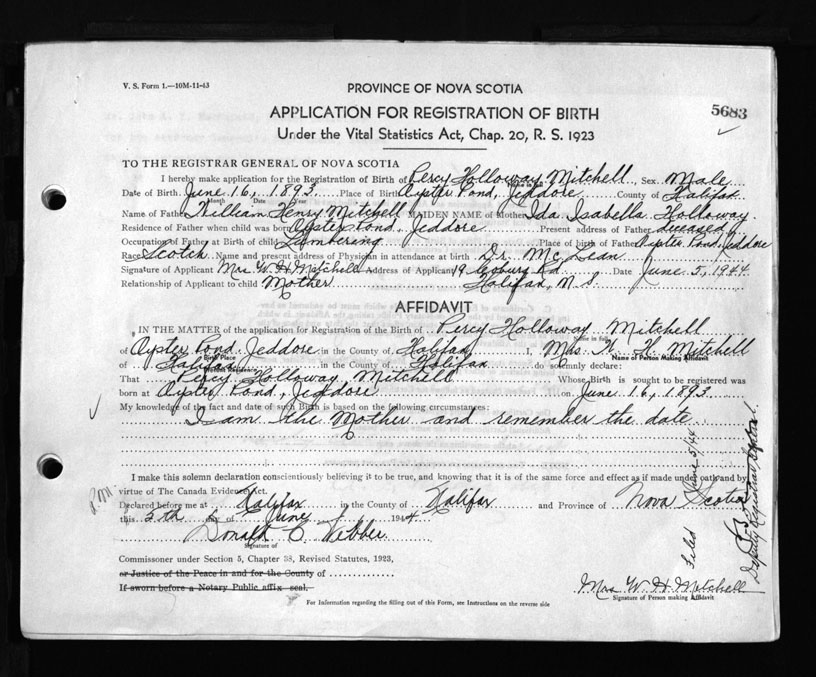 V. S. Form 1.—10M-11-43
PROVINCE OF NOVA SCOTIA
APPLICATION FOR REGISTRATION OF BIRTH
5683
Under the Vital Statistics Act, Chap. 20, R. S. 1923
TO THE REGISTRAR GENERAL OF NOVA SCOTIA
I hereby make application for the Registration of Birth of Percy Holloway Mitchell, Sex Male
Date of Birth June 16, 1893 Place of Birth Oyster Pond, Jeddore County of Halifax
Month Date Year
Name of Father William Henry Mitchell MAIDEN NAME of Mother Ida Isabella Holloway
Residence of Father when child was born Oyster Pond, Jeddore Present address of Father deceased
Occupation of Father at Birth of child Lumbering Place of birth of Father Oyster Pond, Jeddore
Race Scotch Name and present address of Physician in attendance at birth Dr. Mc Dean
Signature of Applicant Mrs W H Mitchell Address of Applicant 19 Coburg Rd Date June 5, 1944
Relationship of Applicant to child Mother Halifax, N. S.
AFFIDAVIT
IN THE MATTER of the application for Registration of the Birth of Percy Holloway Mitchell
Name in full
of Oyster Pond, Jeddore in the County of Halifax I, Mrs. W. H. Mitchell
Birth Place Name of Person Making Affidavit
of Halifax in the County of Halifax do solemnly declare:
Present Residence
That Percy Holloway Mitchell Whose Birth is sought to be registered was
born at Oyster Pond, Jeddore on June 16, 1893
My knowledge of the fact and date of such Birth is based on the following circumstances:
I am the Mother and remember the date
I make this solemn declaration conscientiously believing it to be true, and knowing that it is of the same force and effect as if made under oath and by
virtue of The Canada Evidence Act.
Declared before me at Halifax in the County of Halifax and Province of Nova Scotia
this 5th day of June 1944
Donald C. Webber
Signature of
Commissioner under Section 5, Chapter 38, Revised Statutes, 1923,
or Justice of the Peace in and for the County of
If sworn before a Notary Public affix seal.
Mrs W H Mitchell
Signature of Person making Affidavit
For Information regarding the filling out of this Form, see Instructions on the reverse side
Filed June 5/44
Deputy Registrar General